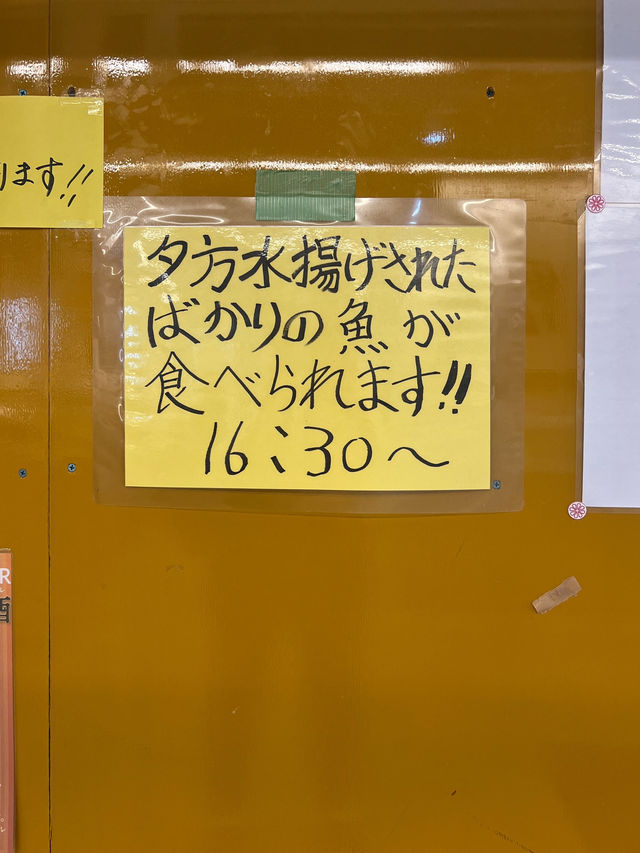 ります!!
夕方水揚げされた
ばかりの魚が
食べられます!!
16:30〜
R